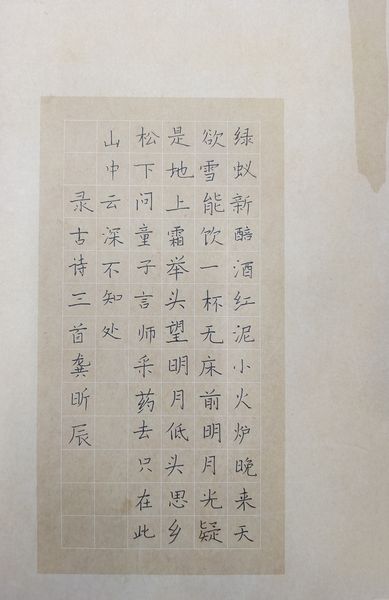 绿蚁新醅酒红泥小火炉晚来天
欲雪能饮一杯无床前明月光疑
是地上霜举头望明月低头思乡
松下问童子言师采药去只在此
山中云深不知处
录古诗三首龚昕辰